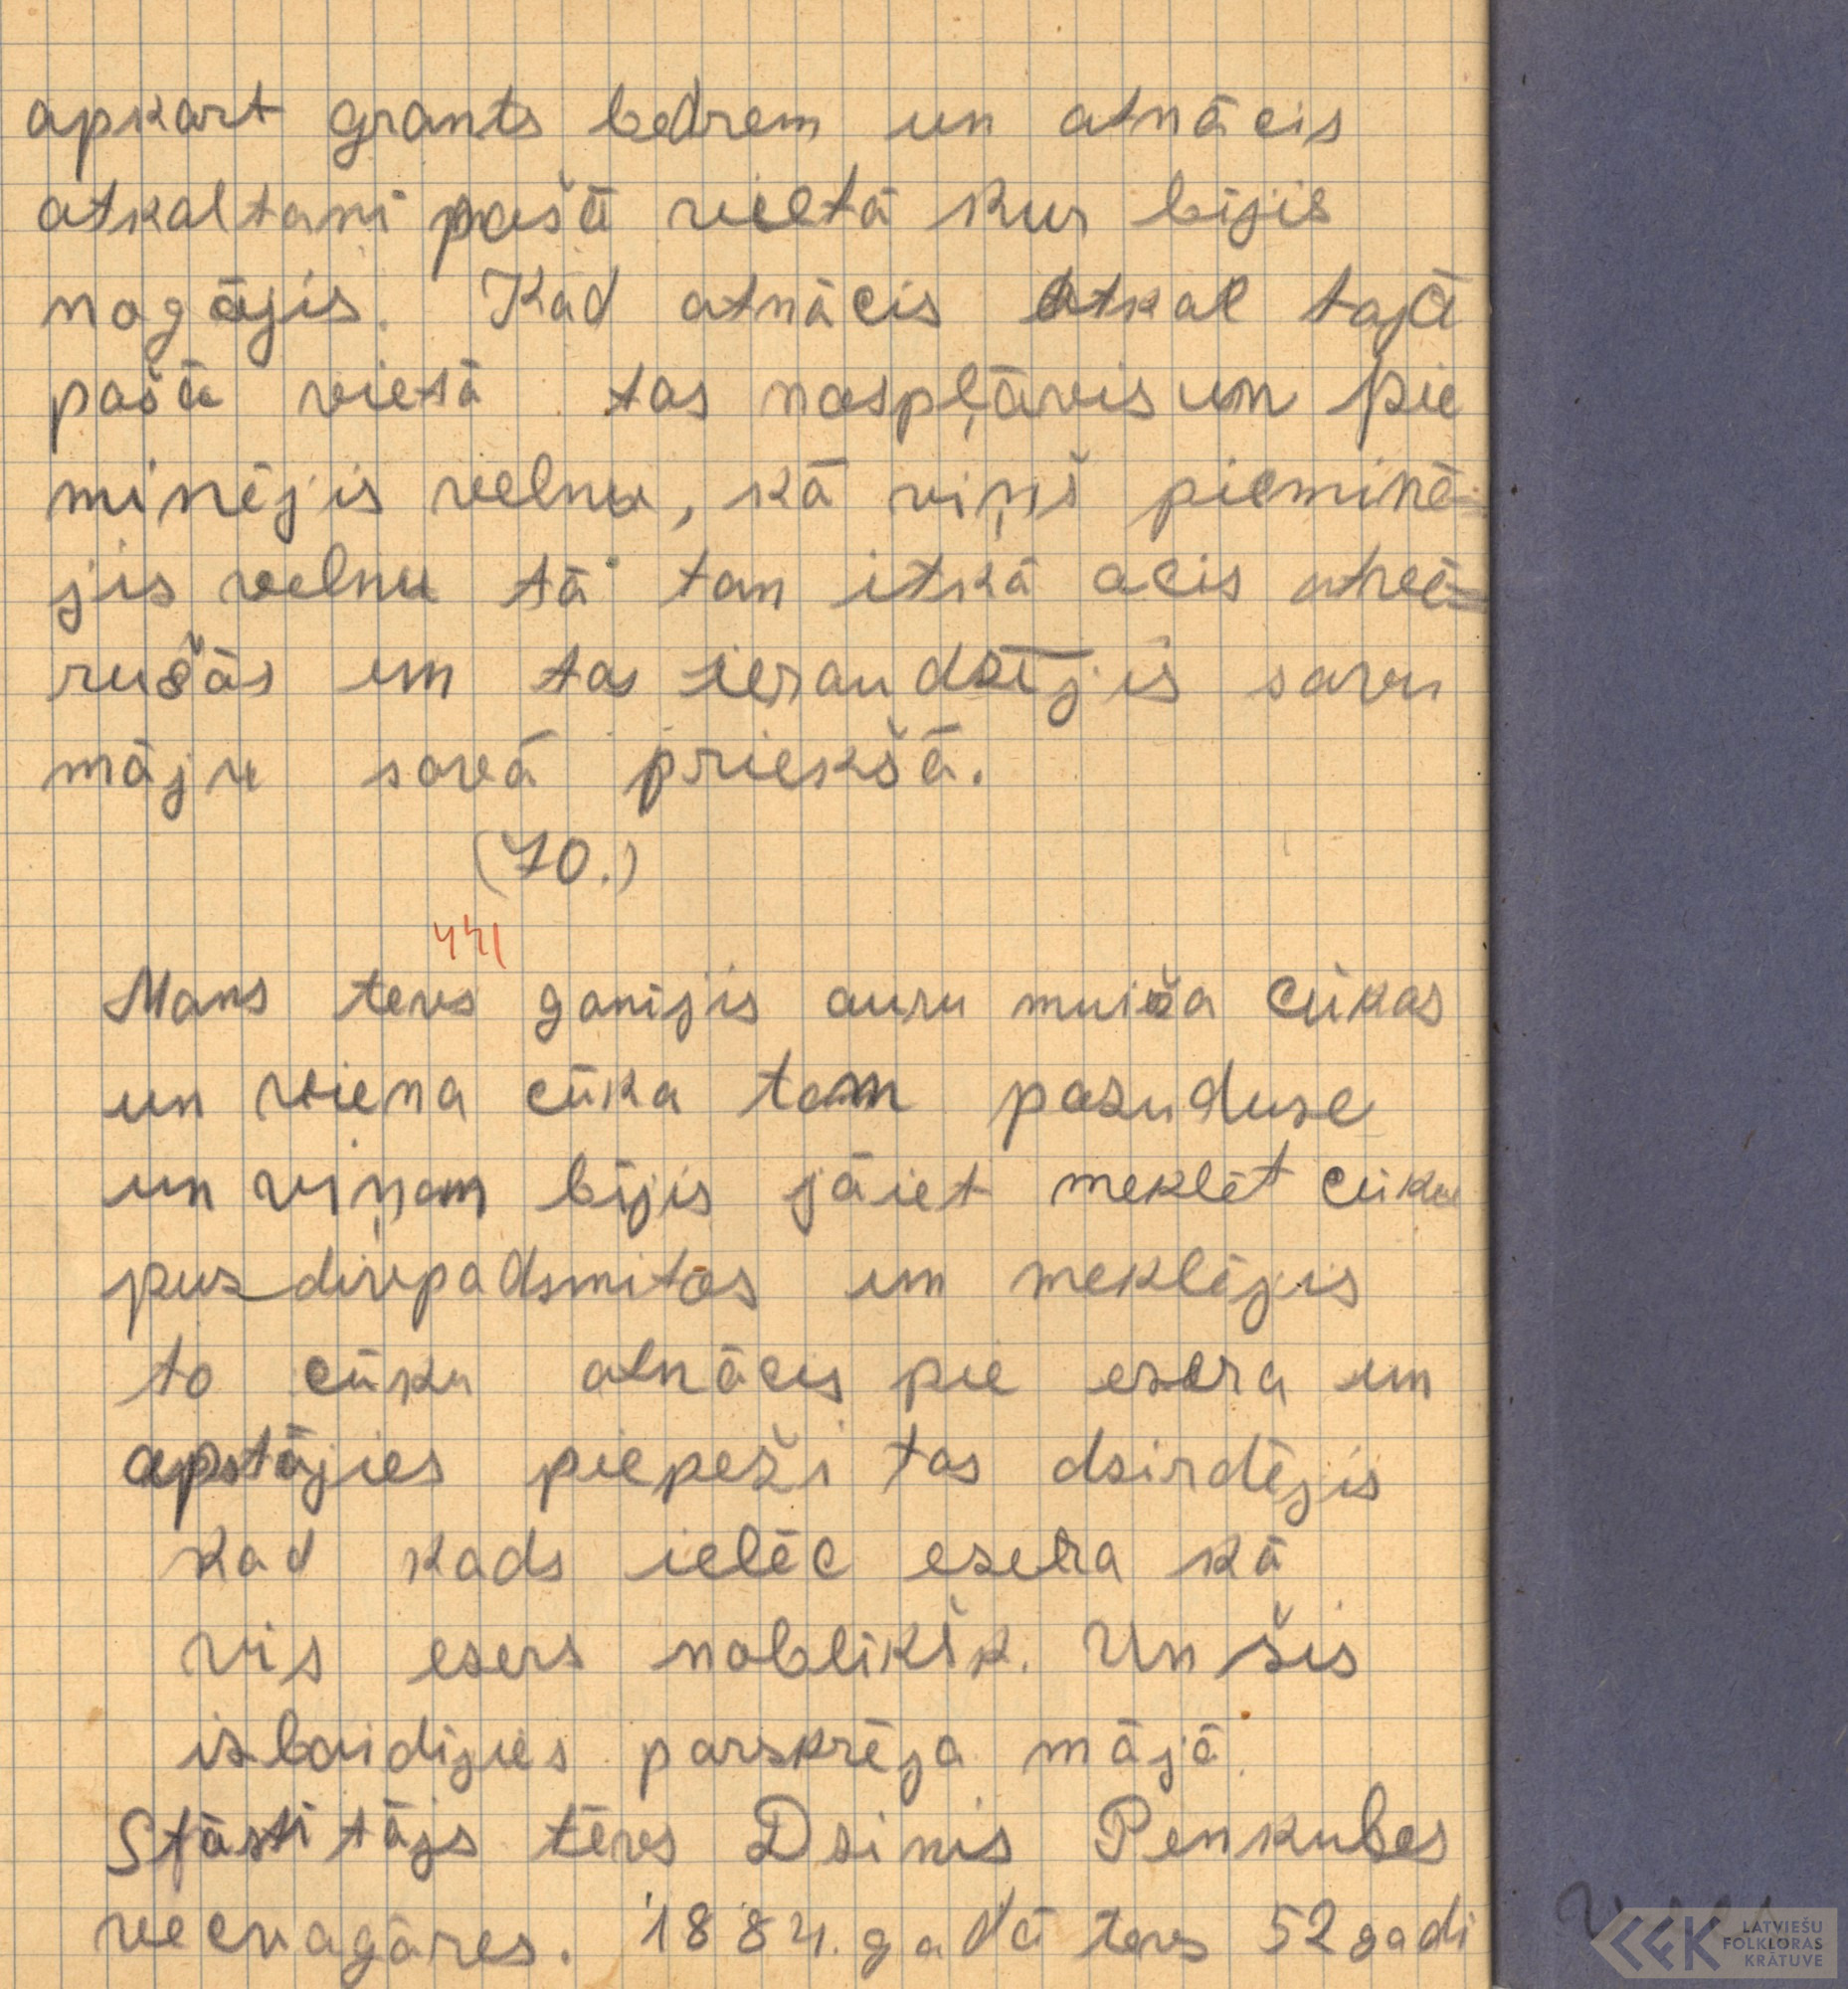 apkart grants bedrem un atnācis
atkal tani pašā vietā kur bijis
nogājis. Kad atnācis atkal tajā
pašā vietā tas nospļāvis un pie
minējis velnu, kā viņš pieminē=
jis velnu tā tam itkā acis atvē=
rušās un tas ieraudzījis savu
māju savā priekšā.
(70.)
441
Mans tevs ganijis auru muiža cūkas
un viena cūka tam pazuduse
un viņam bījis jāiet meklēt cūku
pusdivpadsmitos un meklējis
to cūku atnācis pie ezera un
apstājies piepeži tas dzirdējis
kad kads ielēc ezera kā
vis ezers noblikšk. Un šis
izbaidijies parskrēja mājā.
Stāstitājs tēvs Dzinis Penkules
vecvagāres. 1884. gadā tevs 52 gadi
LATVIEŠU
FOLKLORAS
KRĀTUVE